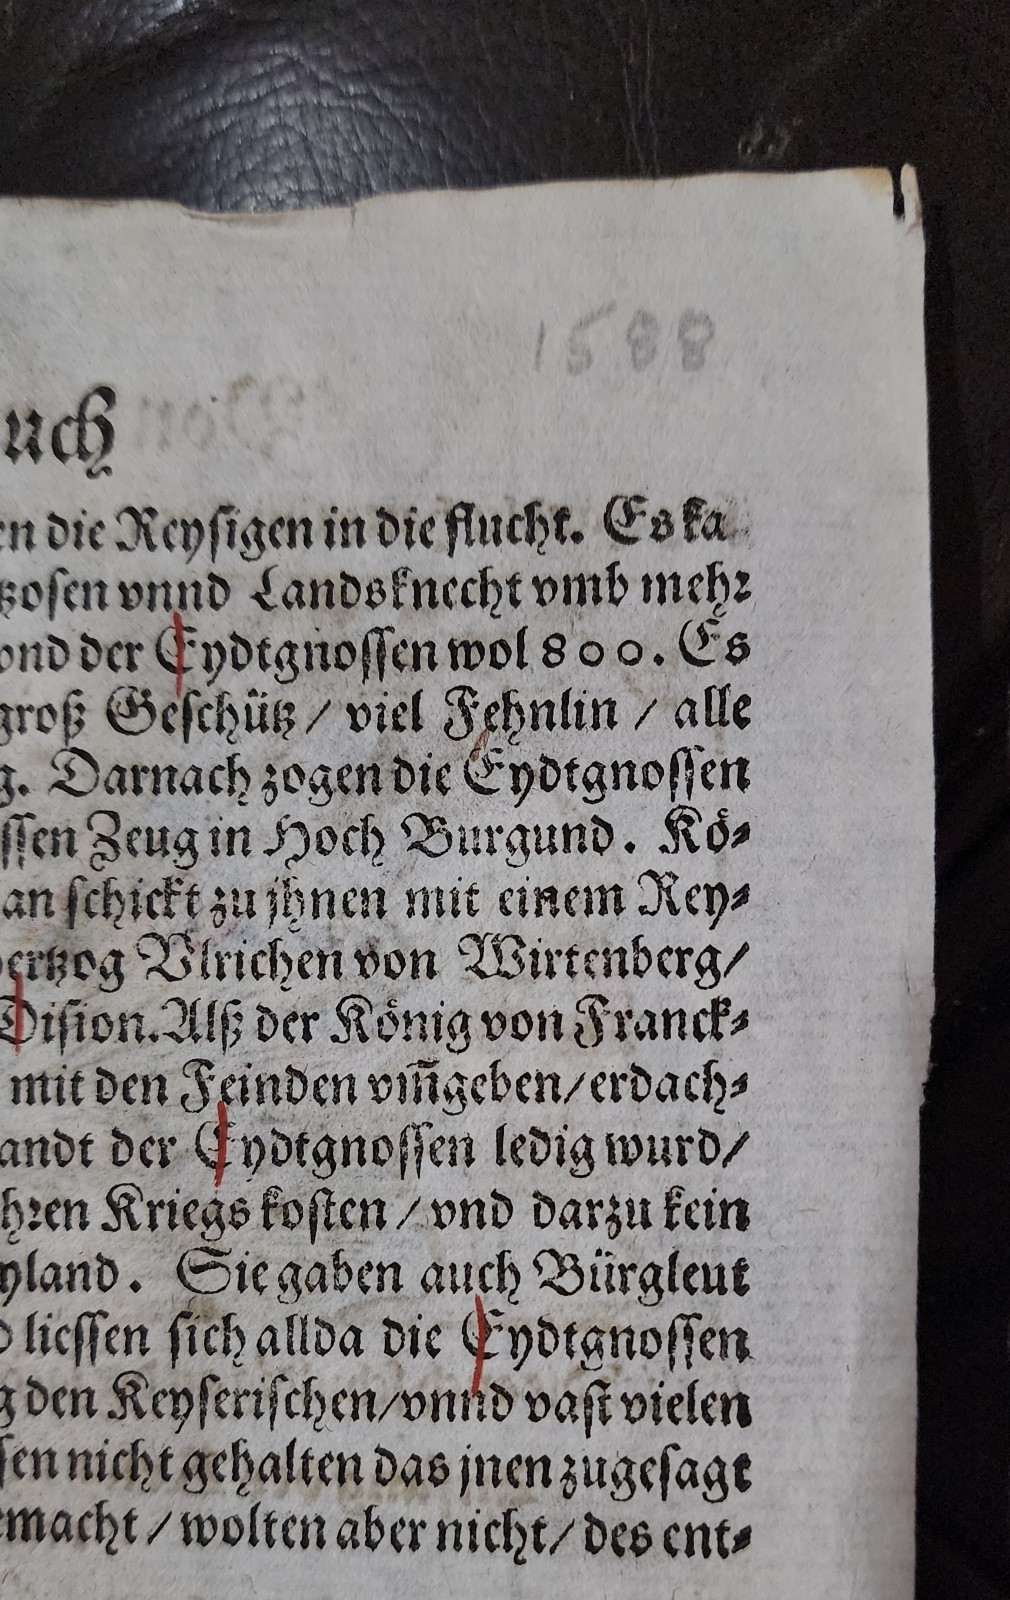 1588
uch
en die Reysigen in die flucht. Es ka
tzosen vnnd Landsknecht vmb mehr
vnd der Eydtgnossen wol 800. Es
groß Geschütz / viel Fehnlin / alle
g. Darnach zogen die Eydtgnossen
ssen Zeug in Hoch Burgund. Kö⸗
an schickt zu jhnen mit einem Rey⸗
hertzog Vlrichen von Wirtenberg/
Dision. Alß der König von Franck⸗
mit den Feinden vm̃geben/erdach⸗
andt der Eydtgnossen ledig wurd/
hren Kriegs kosten / vnd darzu kein
yland. Sie gaben auch Bürgleut
d liessen sich allda die Eydtgnossen
g den Keyserischen/vnnd vast vielen
sen nicht gehalten das jnen zugesagt
emacht / wolten aber nicht/ des ent⸗